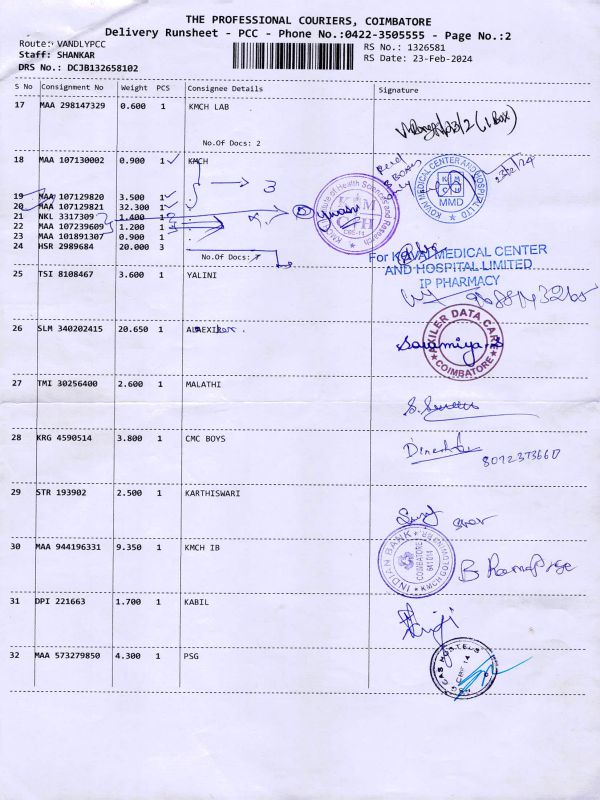 THE PROFESSIONAL COURIERS, COIMBATORE
Delivery Runsheet - PCC - Phone No.:0422-3505555 - Page No.:2
Route: VANDLYPCC
RS No.: 1326581
Staff: SHANKAR
RS Date: 23-Feb-2024
DRS No.: DCJB132658102
S No Consignment No Weight PCS Consignee Details Signature
17 MAA 298147329 0.600 1 KMCH LAB
(1 Box)
No.Of Docs: 2
18 MAA 107130002 0.900 1 KMCH
3
19 MAA 107129820 3.500 1
20 MAA 107129821 32.300 1
21 NKL 3317309 1.400 1
22 MAA 107239609 1.200 1
23 MAA 101891307 0.900 1
24 HSR 2989684 20.000 3
No.Of Docs: 7
KOVAI MEDICAL CENTER AND HOSPITAL LTD
KMCH
MMD
For KOVAI MEDICAL CENTER
AND HOSPITAL LIMITED
IP PHARMACY
25 TSI 8108467 3.600 1 YALINI
26 SLM 340202415 20.650 1
AXILER DATA CARE
COIMBATORE
Saramiya.S
27 TMI 30256400 2.600 1 MALATHI
28 KRG 4590514 3.800 1 CMC BOYS
29 STR 193902 2.500 1 KARTHISWARI
30 MAA 944196331 9.350 1 KMCH IB
INDIAN BANK
COIMBATORE
641014
31 DPI 221663 1.700 1 KABIL
32 MAA 573279850 4.300 1 PSG